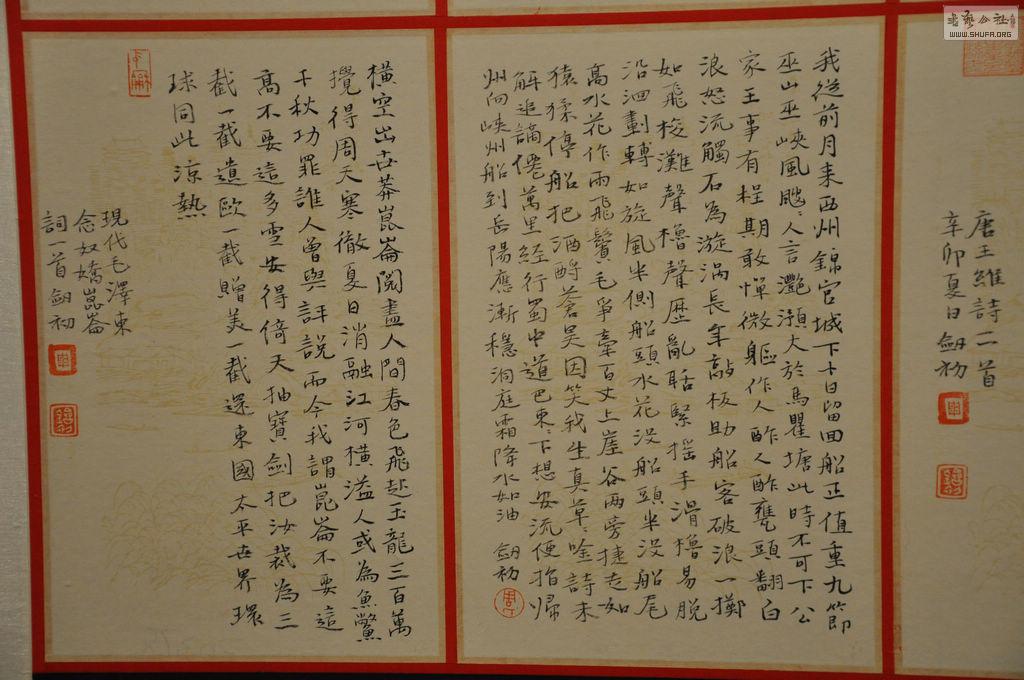 書藝公社
WWW.SHUFA.ORG
唐王維詩二首
辛卯夏日 劍初
我從前月来西州錦官城下十日留回船正值重九節
巫山巫峽風颼〻人言灩澦大於馬瞿塘此時不可下公
家王事有程期敢憚微軀作人酢人酢甕頭翻白
浪怒流觸石為漩渦長年敲板助船客破浪一擲
如飛梭灘聲櫓聲歷亂聒緊搖手滑櫓易脫
沿洄劃轉如旋風半側船頭水花沒船頭半沒船尾
高水花作雨飛鬢毛爭牽百丈上崖谷兩旁捷走如
猿猱停船把酒酹蒼昊因笑我生真草〻唫詩未
解追謫僊萬里經行蜀中道巴東〻下想安流便指歸
州向峽州船到岳陽應漸穩洞庭霜降水如油 劍初
橫空出世莽崑崙閱盡人間春色飛起玉龍三百萬
攪得周天寒徹夏日消融江河橫溢人或為魚鱉
千秋功罪誰人曾與評說而今我謂崑崙不要這
高不要這多雪安得倚天抽寶劍把汝裁為三
截一截遺歐一截贈美一截還東國太平世界環
球同此涼熱
現代毛澤東
念奴嬌崑崙
詞一首 劍初